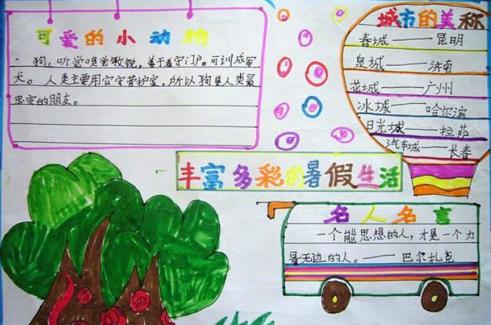 可爱的小动物
狗，听觉嗅觉敏锐，善于看守门户。可训成军
犬。人类主要用它守营护家，所以狗是人类最
忠实的朋友。
城市的美称
春城——昆明
泉城——济南
花城——广州
冰城——哈尔滨
日光城——拉萨
汽车城——长春
丰富多彩的暑假生活
名人名言
一个能思想的人，才是一个力
量无边的人。——巴尔扎克